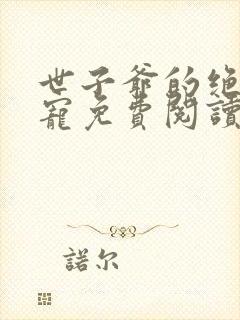 世子爷的绝
寵免費閱讀
諾尔